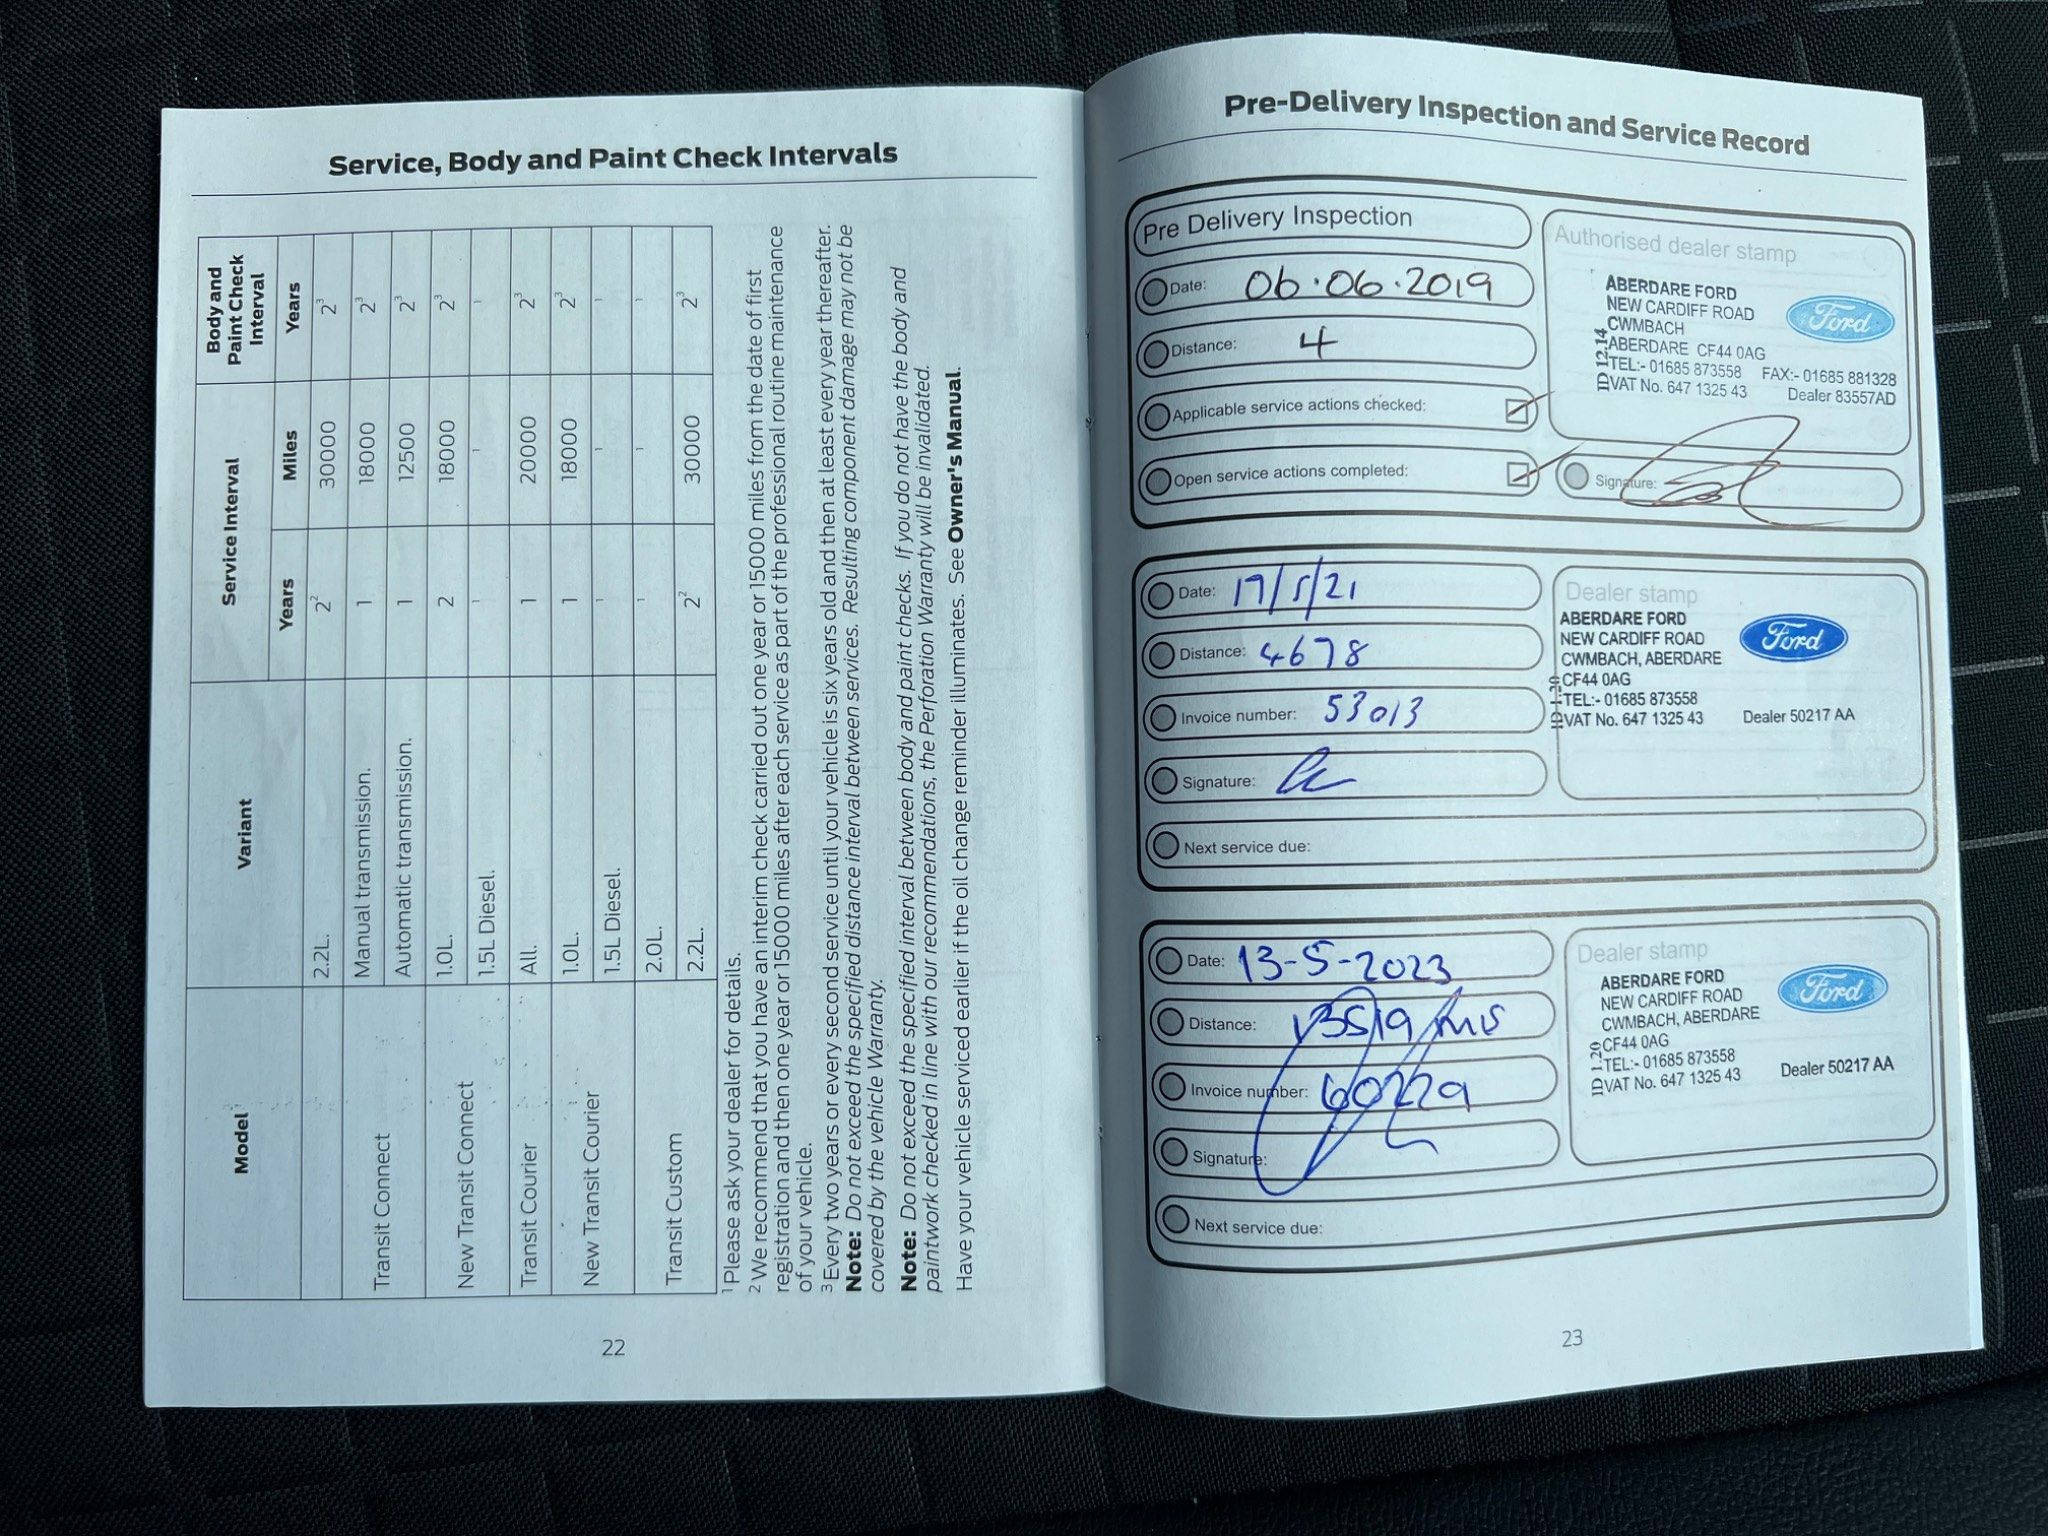 Service, Body and Paint Check Intervals
Model Variant Service Interval Body and Paint Check Interval
Years Miles Years
2.2L. 2² 30000 2³
Transit Connect Manual transmission. 1 18000 2³
Automatic transmission. 1 12500 2³
New Transit Connect 1.0L. 2 18000 2³
1.5L Diesel. 1 1 1
Transit Courier All. 1 20000 2³
New Transit Courier 1.0L. 1 18000 2³
1.5L Diesel. 1 1 1
Transit Custom 2.0L. 1 1 1
2.2L. 2² 30000 2³
¹ Please ask your dealer for details.
² We recommend that you have an interim check carried out one year or 15000 miles from the date of first
registration and then one year or 15000 miles after each service as part of the professional routine maintenance
of your vehicle.
³ Every two years or every second service until your vehicle is six years old and then at least every year thereafter.
Note: Do not exceed the specified distance interval between services. Resulting component damage may not be
covered by the vehicle Warranty.
Note: Do not exceed the specified interval between body and paint checks. If you do not have the body and
paintwork checked in line with our recommendations, the Perforation Warranty will be invalidated.
Have your vehicle serviced earlier if the oil change reminder illuminates. See Owner's Manual.
22
Pre-Delivery Inspection and Service Record
Pre Delivery Inspection
Date: 06.06.2019
Distance: 4
Applicable service actions checked:
Open service actions completed:
Authorised dealer stamp
ABERDARE FORD
NEW CARDIFF ROAD
CWMBACH
ABERDARE CF44 0AG
TEL:- 01685 873558 FAX:- 01685 881328
VAT No. 647 1325 43 Dealer 83557AD
ID 12.14
Ford
Signature:
Date: 17/5/21
Distance: 4678
Invoice number: 53013
Signature:
Next service due:
Dealer stamp
ABERDARE FORD
NEW CARDIFF ROAD
CWMBACH, ABERDARE
CF44 0AG
TEL:- 01685 873558
VAT No. 647 1325 43 Dealer 50217 AA
Ford
Date: 13-5-2023
Distance: 13519 mls
Invoice number: 60229
Signature:
Next service due:
Dealer stamp
ABERDARE FORD
NEW CARDIFF ROAD
CWMBACH, ABERDARE
CF44 0AG
TEL:- 01685 873558
VAT No. 647 1325 43 Dealer 50217 AA
ID 1.20
Ford
23